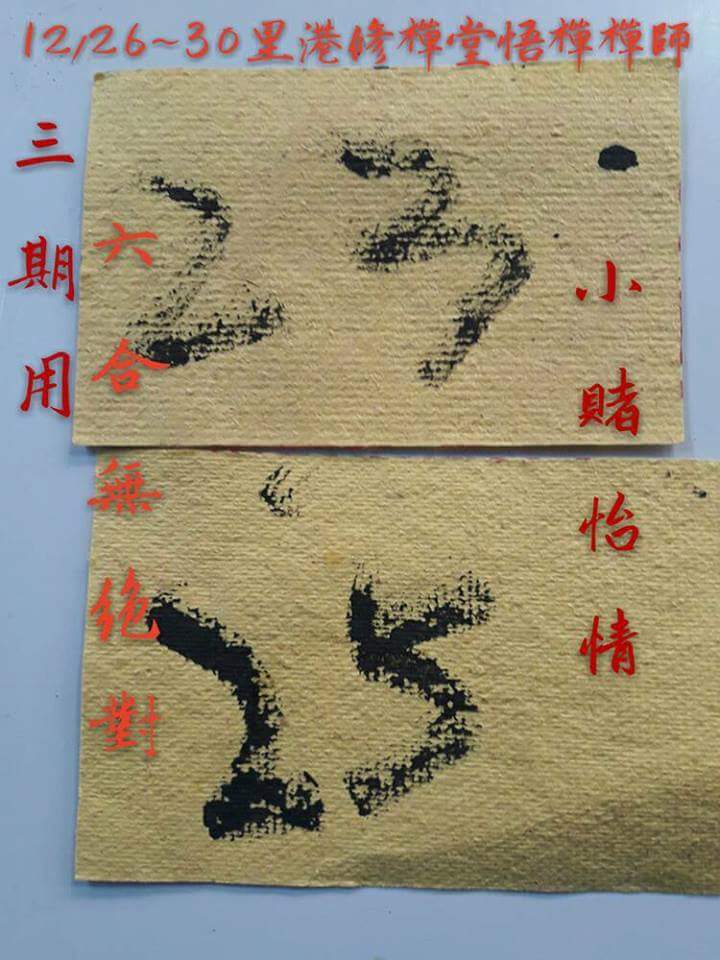 12/26~30里港修禪堂悟禪禪師
三期用
六合無絕對
小賭怡情
23
25